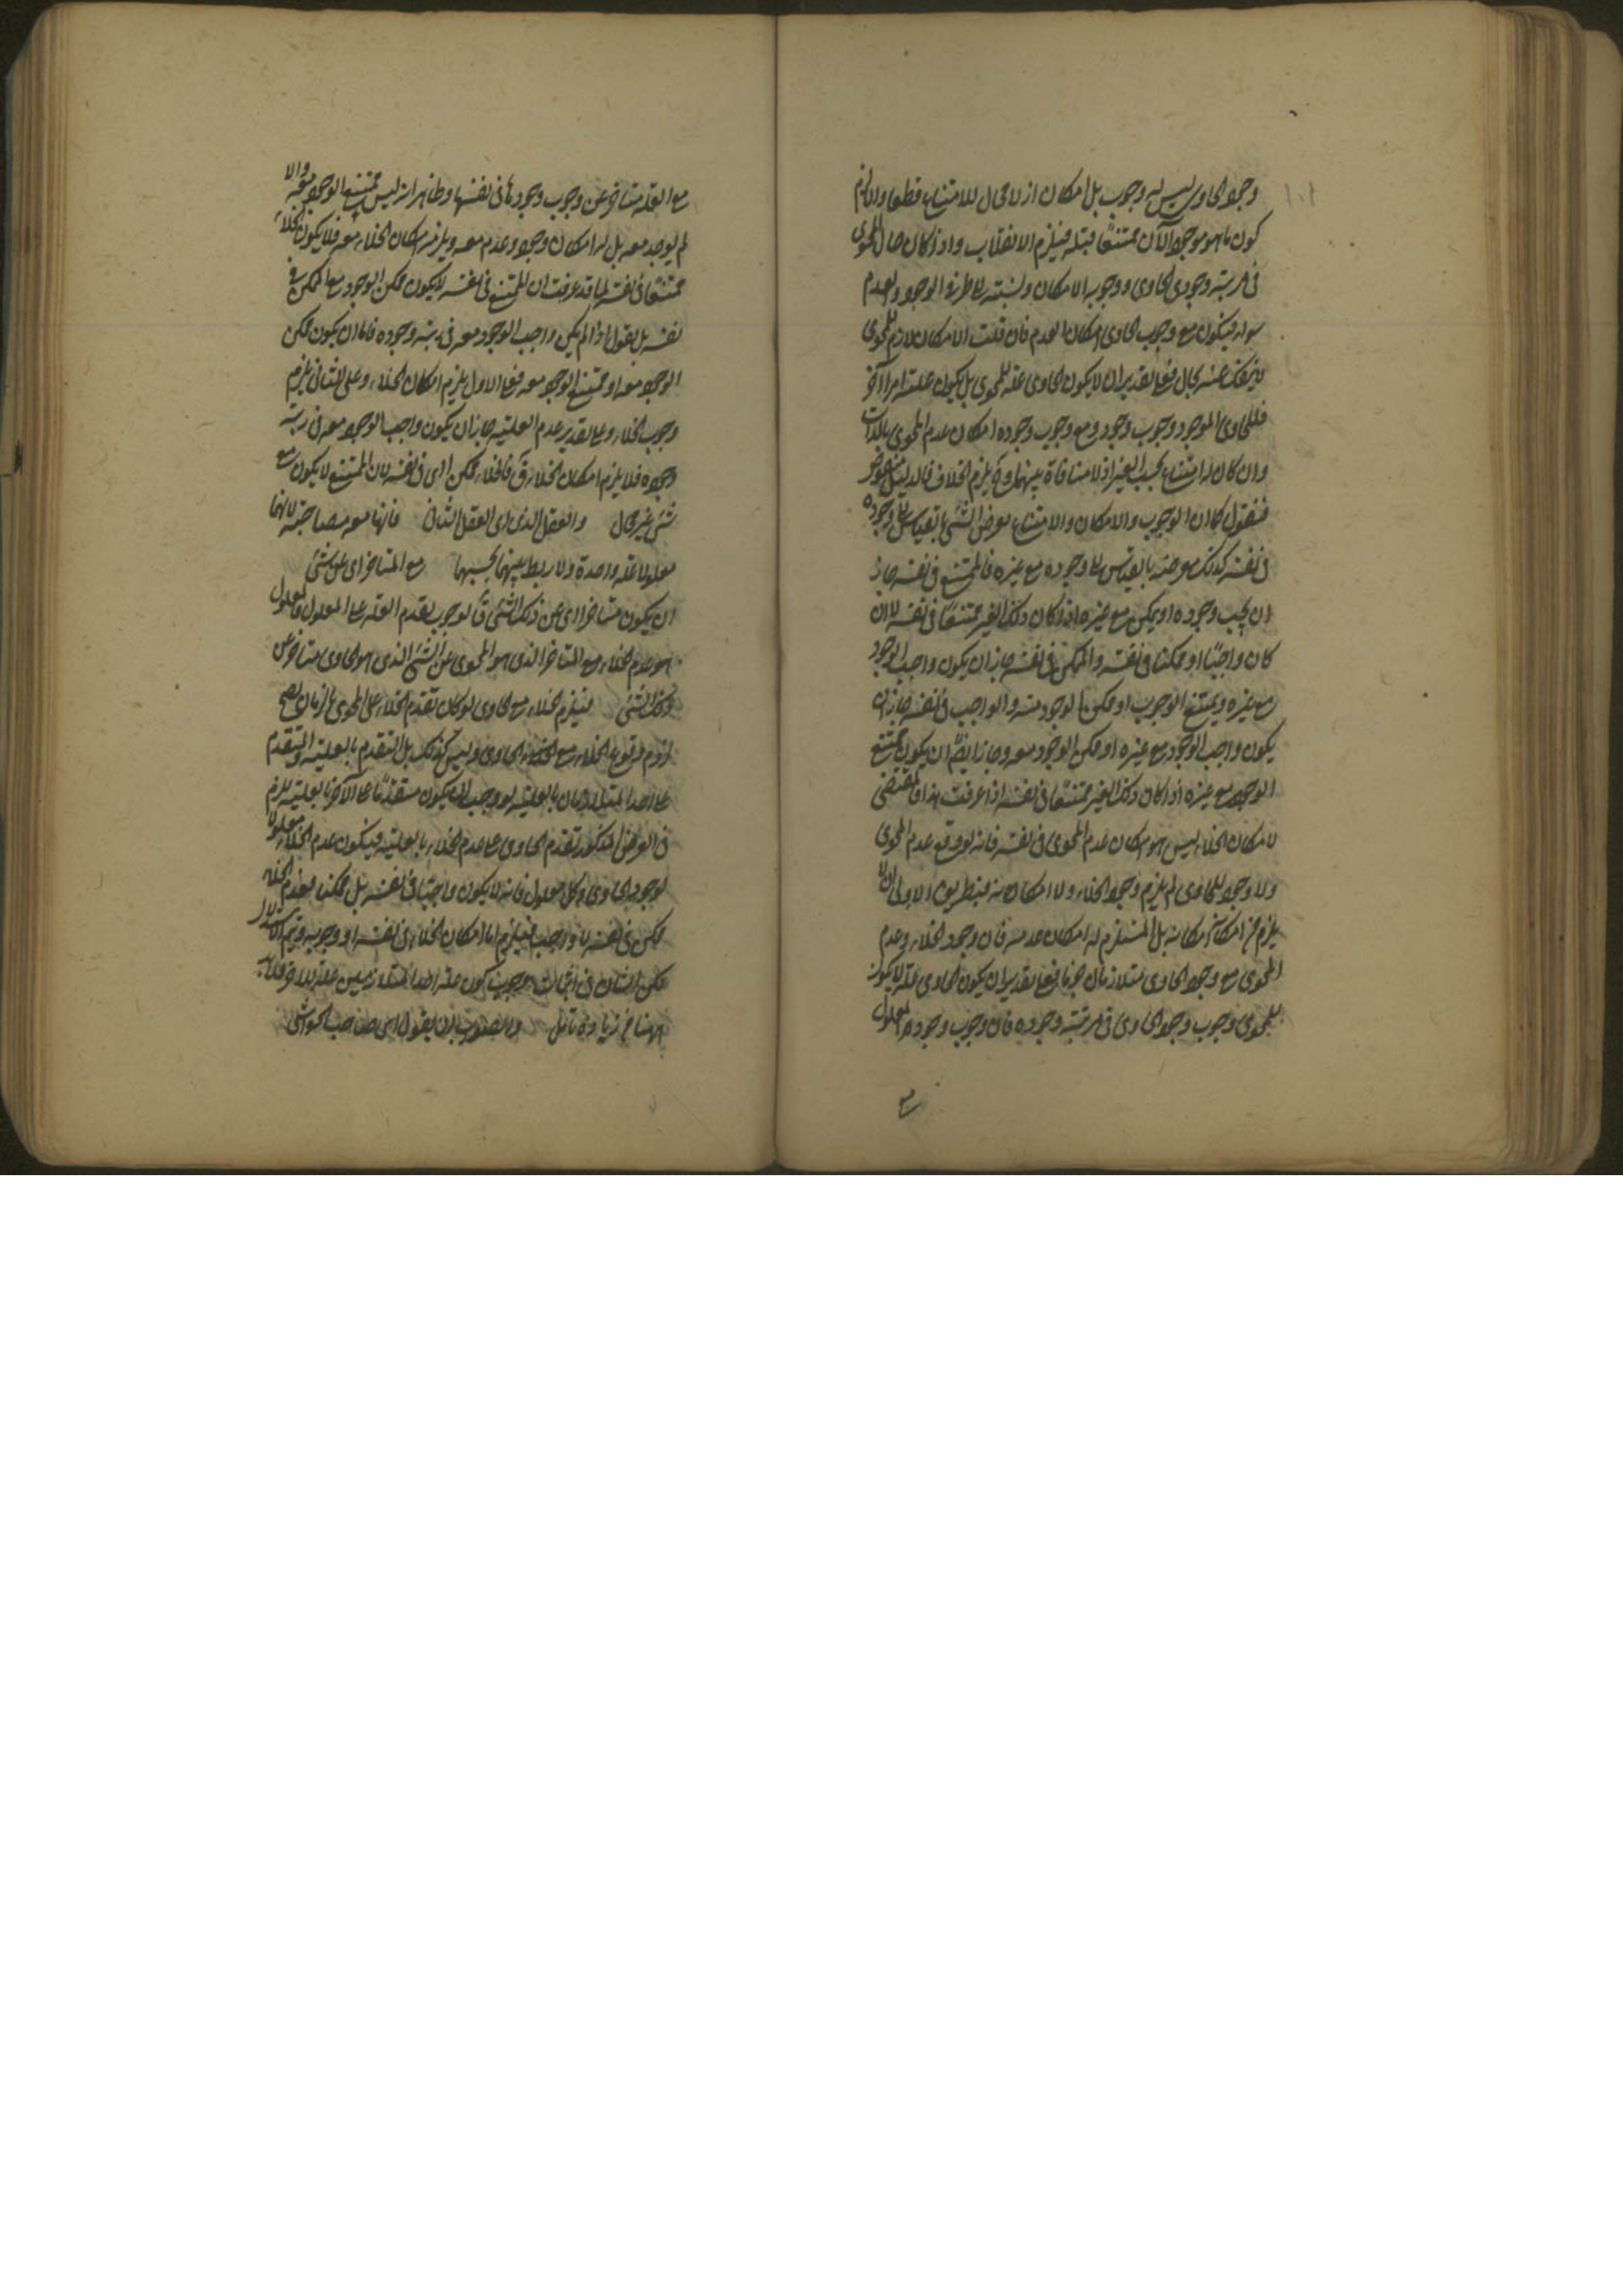 وجود الحاوى ليس له وجوب بل امكان اذ لا مجال للامتناع قطعا والا لزم
كون ما هو موجود الآن ممتنعا قبله فيلزم الانقلاب واذا كان حال المحوى
فى مرتبة وجودى الحاوى ووجوبه الامكان ونسبته الى طرفى الوجود والعدم
سواء فيكون مع وجوب الحاوى امكان العدم فان قلت الامكان لازم للمحوى
لا ينفك عنه بحال فعلى تقدير ان لا يكون الحاوى علة للمحوى بل يكون علته امرا آخر
فللحاوى الموجود وجوب وجود ومع وجوب وجوده امكان عدم المحوى بالذات
وان كان له امتناع بحسب الغير اذ لا منافاة بينهما وح يلزم الخلاف فالدليل منقوض
فنقول كما ان الوجوب والامكان والامتناع يعرض الشئ بالقياس الى وجوده
فى نفسه كذلك يعرضه بالقياس الى وجوده مع غيره فالممتنع فى نفسه جاز
ان يجب وجوده او يمكن مع غيره اذا كان ذلك الغير ممتنعا فى نفسه لا ان
كان واجبا او ممكنا فى نفسه والممكن فى نفسه جاز ان يكون واجب الوجود
مع غيره وممتنع الوجوب او ممكن الوجود منه والواجب فى نفسه جاز ان
يكون واجب الوجود مع غيره او ممكن الوجود معه وجاز ايضا ان يكون ممتنع
الوجود مع غيره اذا كان ذلك الغير ممتنعا فى نفسه اذا عرفت هذا فالمقتضى
لامكان الخلاء ليس هو امكان عدم المحوى فى نفسه فانه لو وقع عدم المحوى
ولا وجود للحاوى لم يلزم وجود الخلاء ولا امكان منه فبطريق الاولى ان لا
يلزم من امكانه بل المستلزم له امكان عدمه فان وجود الخلاء وعدم
المحوى مع وجود الحاوى متلازمان جزما فعلى تقدير ان يكون الحاوى علة لا يكون
للمحوى وجوب وجود الحاوى فى مرتبة وجوده فان وجوب وجود المعلول
مع
مع العلة متأخر عن وجوب وجودها فى نفسها وظاهر انه ليس ممتنع الوجود معه والا
لم يوجد معه بل له امكان وجود وعدم معه ويلزمه امكان الخلاء معه فلا يكون الخلاء
ممتنعا فى نفسه لما قد عرفت ان الممتنع فى نفسه لا يكون ممكن الوجود مع الممكن فى
نفسه بل نقول اذا لم يكن واجب الوجود معه فى رتبة وجوده فاما ان يكون ممكن
الوجود معه او ممتنع الوجود معه فعلى الاول يلزم امكان الخلاء وعلى الثانى يلزم
وجوب الخلاء وعلى تقدير عدم العلية جاز ان يكون واجب الوجود معه فى رتبة
وجوده فلا يلزم امكان الخلاء ق فالخلاء ممكن اى فى نفسه لان الممتنع لا يكون مع
شئ غير محال والعقل الذى اى العقل الثانى فانها معه مصاحبة لانهما
معلولا علة واحدة ولا ربط بينهما بحسبها مع المتأخر اى عن شئ
ان يكون متأخرا اى عن ذلك الشئ ق لوجوب تقدم العلة على المعلول فالمعلول
هو عدم الخلاء مع المتأخر الذى هو المحوى عن الشئ الذى هو الحاوى متأخر عن
ذلك الشئ فيلزم الخلاء مع الحاوى لو كان تقدم الخلاء على المحوى بالزمان لصح
لزوم وقوع الخلاء مع الحاوى وليس كذلك بل التقدم بالعلية والتقدم
على احد المتلازمان بالعلية لو وجب ان يكون متقدما على الآخر بالعلية يلزم
فى الفرض المذكور تقدم الحاوى على عدم الخلاء بالعلية فيكون عدم الخلاء معلولا
لوجود الحاوى وكل معلول فانه لا يكون واجبا فى نفسه بل ممكنا فعدم الخلاء
ممكن فى نفسه لا واجب فيلزم اما امكان الخلاء فى نفسه او وجوبه ويتم الاستدلال
لكن الشان فى اثبات وجوب كون علة احد المتلازمين علة للآخر فلا بد
ههنا من زيادة تأمل والصواب ان يقول اى صاحب الحواشى